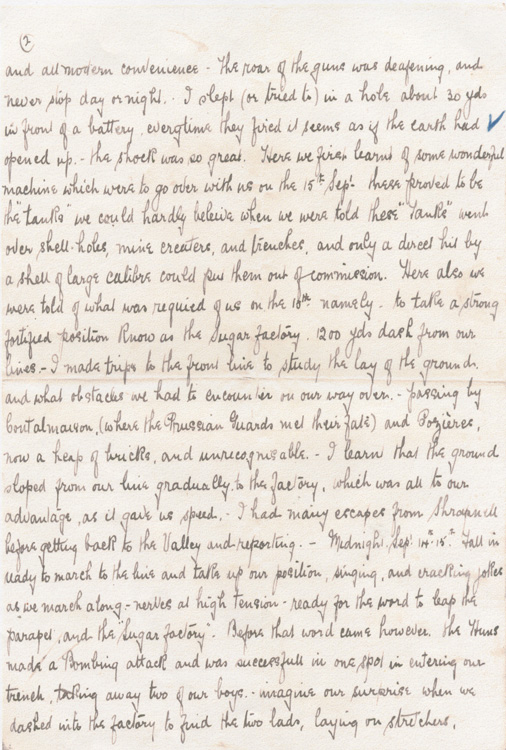 2
and all modern convenience - The roar of the guns was deafening, and
never stop day or night. - I slept (or tried to) in a hole about 30 yds
in front of a battery, everytime they fired it seems as if the earth had
opened up. - the shock was so great. Here we first learnt of some wonderful
machine which were to go over with us on the 15th Sept. these proved to be
the "tanks" we could hardly beleive when we were told these "Tanks" went
over shell-holes, mine craters, and trenches, and only a direct hit by
a shell of large calibre could put them out of commission. Here also we
were told of what was required of us on the namely. to take a strong
fortified position know as the Sugar factory. 1200 yds dash from our
lines. - I made trips to the front line to study the lay of the ground.
and what obstacles we had to encounter on our way over. - passing by
Contalmaison, (where the Prussian Guards met their fate) and Pozieres,
now a heap of bricks, and unrecognisable. - I learn that the ground
sloped from our line gradually to the factory, which was all to our
advantage, as it gave us speed. - I had many escapes from Shrapnell
before getting back to the Valley and reporting. - Midnight Sept 14th-15th. Fall in
ready to march to the line and take up our position, singing, and cracking jokes
as we march along - nerves at high tension - ready for the word to leap the
parapet, and the "Sugar factory". Before that word came however. the Huns
made a Bombing attack and was successfull in one spot in entering our
trench, taking away two of our boys. - imagine our surprise when we
dashed into the factory to find the two lads, laying on stretchers,